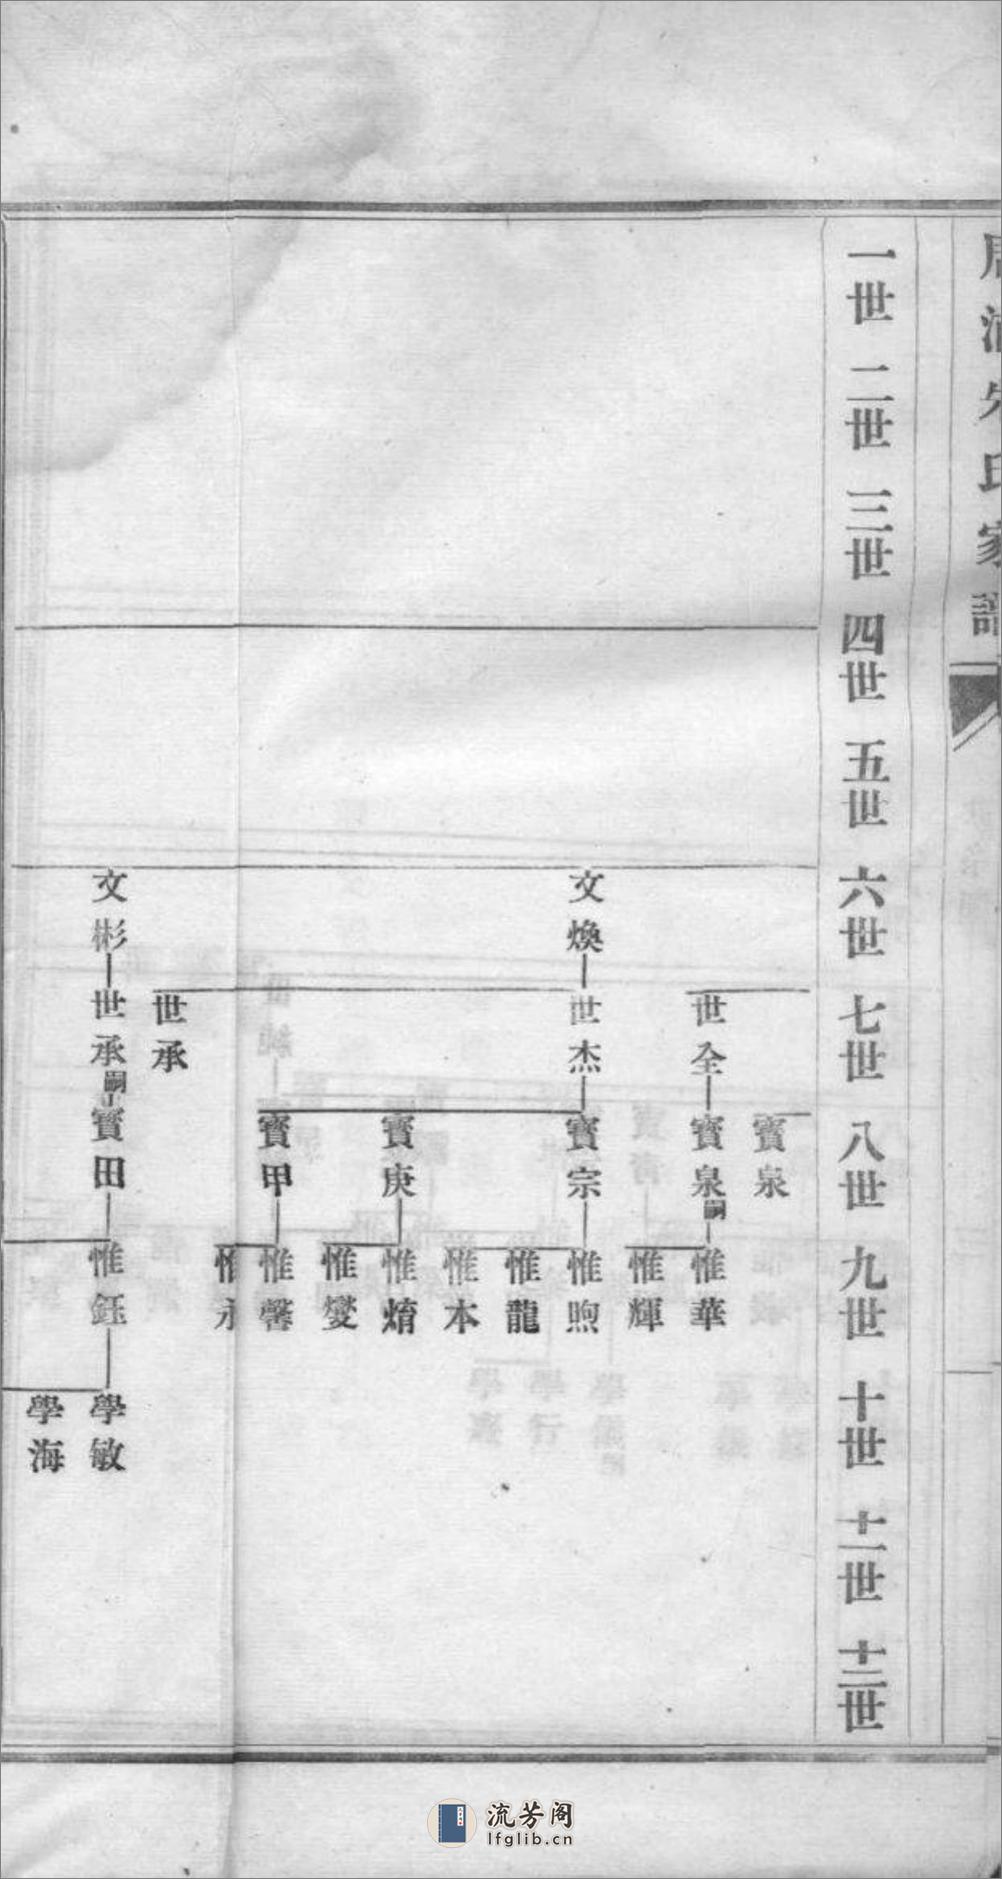 氏家譜
一世 二世 三世 四世 五世 六世 七世 八世 九世 十世 十一世 十二世
文煥 文彬
世全 世杰 世承 世承嗣
寶泉 寶泉嗣 寶宗 寶庚 寶甲 寶田
惟華 惟輝 惟煦 惟龍 惟本 惟焴 惟燮 惟馨 惟永 惟鈺
學敏 學海
流芳阁
lfglib.cn